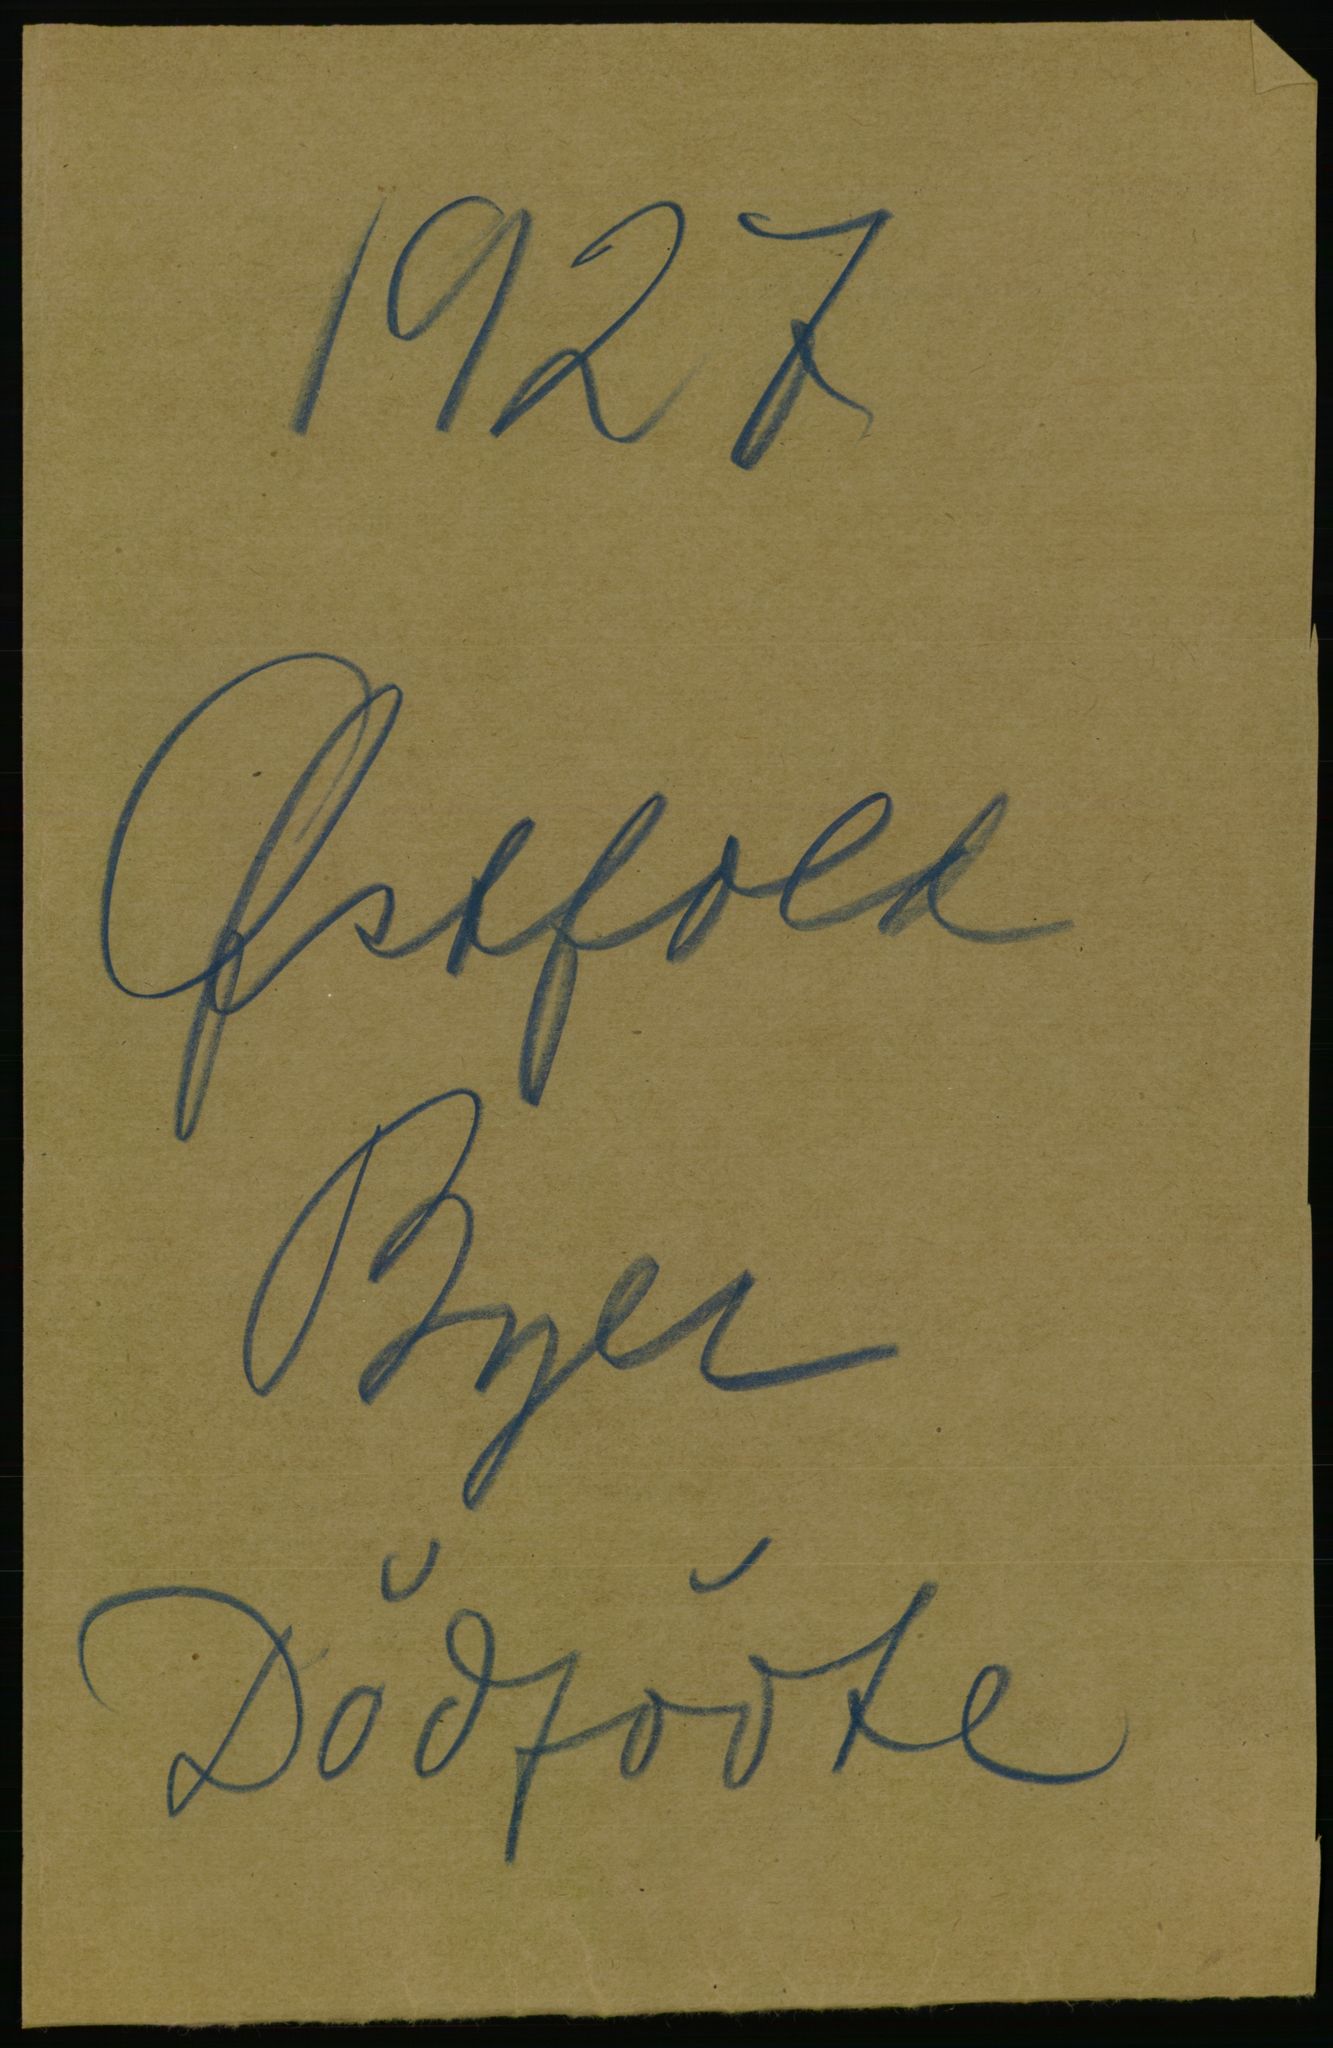 1927
Østfold
Byer
Dödföd​te